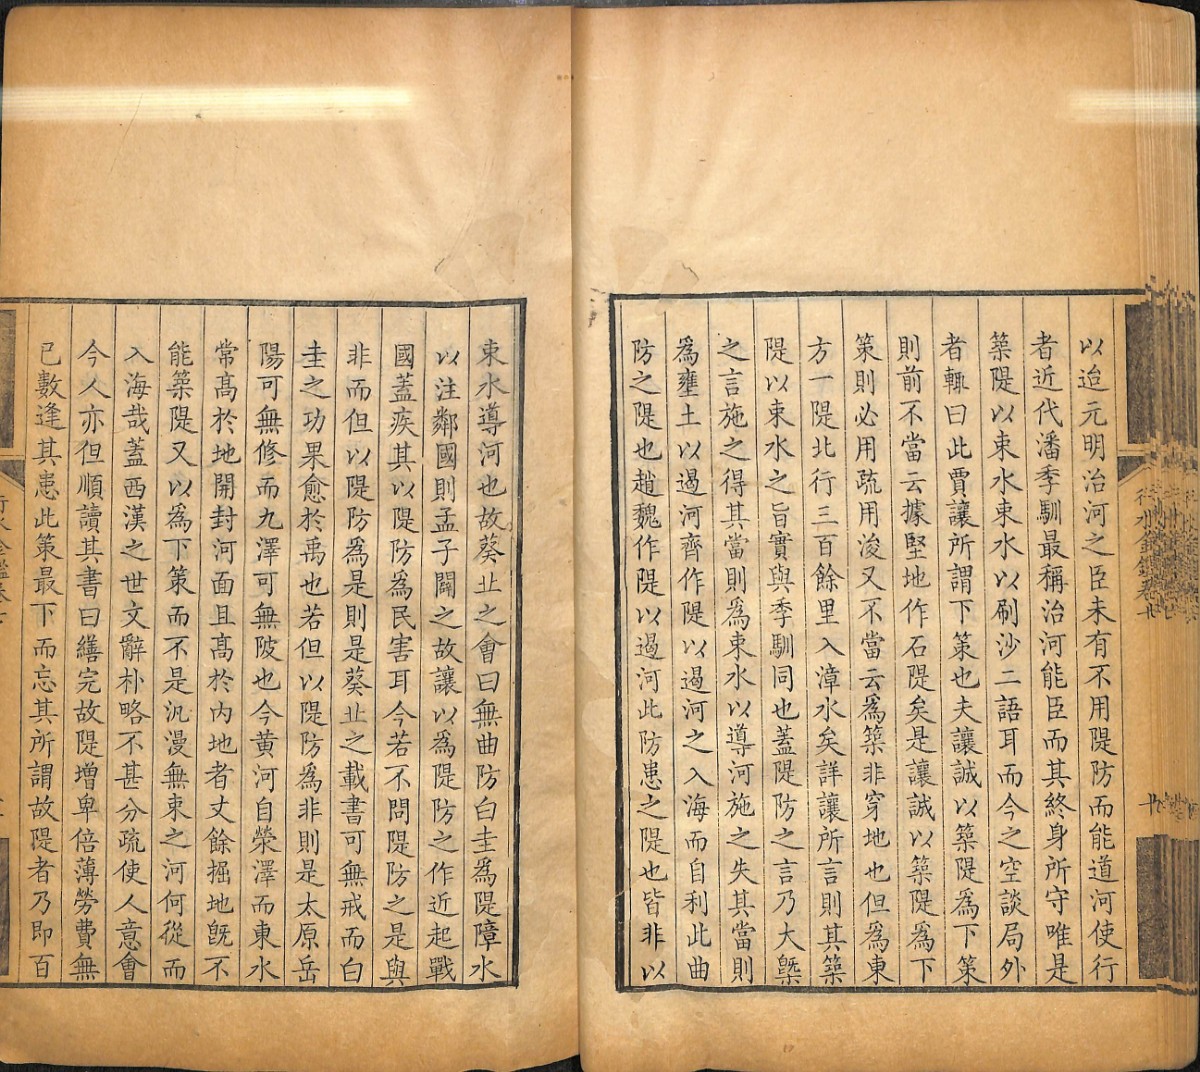 以迨元明治河之臣未有不用隄防而能道河使行
者近代潘季馴最稱治河能臣而其終身所守唯是
築隄以束水束水以刷沙二語耳而今之空談局外
者輒曰此賈讓所謂下策也夫讓誠以築隄為下策
則前不當云據堅地作石隄矣是讓誠以築隄爲下
策則必用疏用浚又不當云爲築非穿地也但爲東
方一隄北行三百餘里入漳水矣詳讓所言則其築
隄以束水之旨實與季馴同也蓋隄防之言乃大槩
之言施之得其當則為束水以導河施之失其當則
爲壅土以遏河齊作隄以遏河之入海而自利此曲
防之隄也趙魏作隄以遏河此防患之隄也皆非以
束水導河也故葵丘之會曰無曲防白圭爲隄障水
以注鄰國則孟子闢之故讓以爲隄防之作近起戰
國蓋疾其以隄防為民害耳今若不問隄防之是與
非而但以隄防爲是則是葵丘之載書可無戒而白
圭之功果愈於禹也若但以隄防為非則是太原岳
陽可無修而九澤可無陂也今黄河自滎澤而東水
常高於地開封河面且高於内地者丈餘掘地旣不
能築隄又以為下策而不是汎漫無束之河何從而
入海哉蓋西漢之世文辭朴略不甚分疏使人意會
今人亦但順讀其書曰繕完故隄增卑倍薄勞費無
已數逢其患此策最下而忘其所謂故隄者乃即百